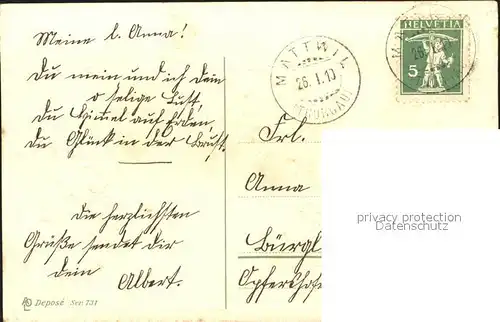 Meine l. Anna!
Du mein und ich dein
o selige Lust,
du Himmel auf Erden,
du Glück in der Brust.
Die herzlichsten
Grüße sendet dir
dein Albert.
Deposé Ser. 731
MATTWIL
26. I. 10
(THURGAU)
HELVETIA
5
Frl.
Anna
Bürgl
Opfershofe
privacy protection
Datenschutz